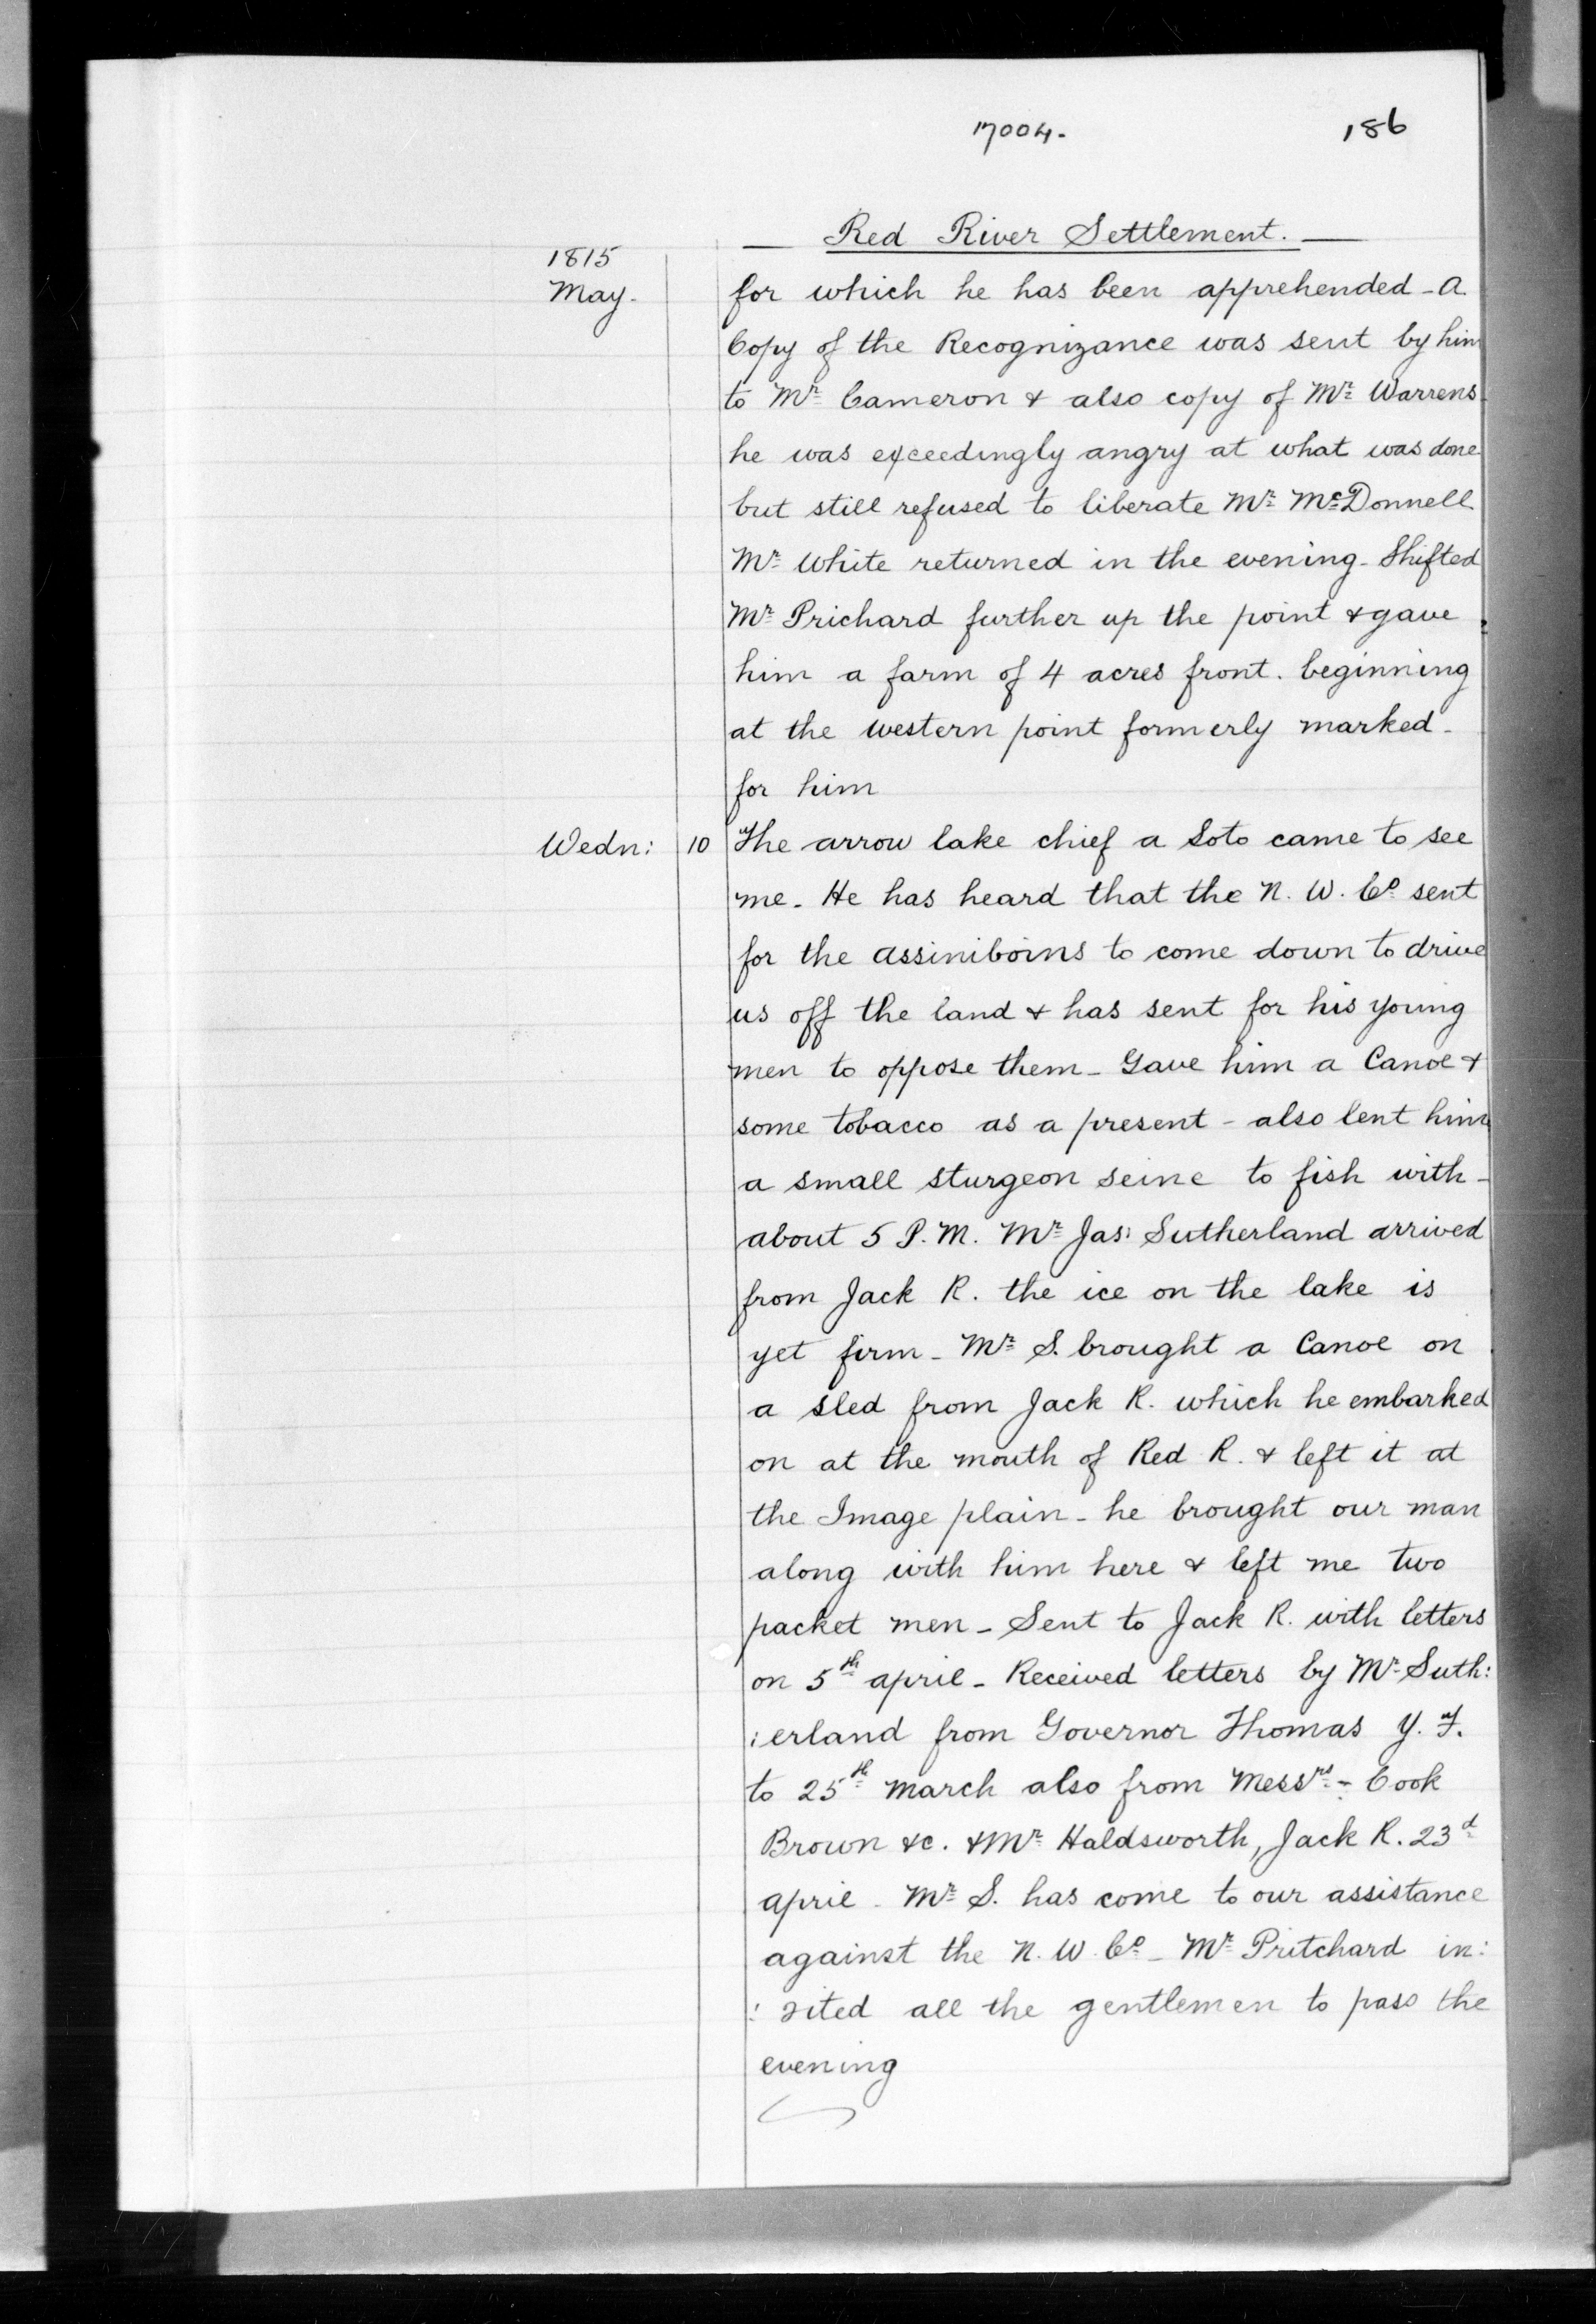 17004.
186
Red River Settlement.
1815
May.
for which he has been apprehended - A
Copy of the Recognizance was sent by him
to Mr Cameron & also copy of Mr Warrens
he was exceedingly angry at what was done
but still refused to liberate Mr McDonnell
Mr White returned in the evening - Shifted
Mr Prichard further up the point & gave
him a farm of 4 acres front. beginning
at the western point formerly marked -
for him
Wedn: 10 The arrow lake chief a Soto came to see
me - He has heard that the N. W. Co sent
for the assiniboins to come down to drive
us off the land & has sent for his young
men to oppose them - Gave him a Canoe &
some tobacco as a present - also lent him
a small sturgeon seine to fish with -
about 5 P.M. Mr Jas: Sutherland arrived
from Jack R. the ice on the lake is
yet firm - Mr S. brought a Canoe on
a sled from Jack R. which he embarked
on at the mouth of Red R. & left it at
the Image plain - he brought our man
along with him here & left me two
packet men - Sent to Jack R. with letters
on 5th april - Received letters by Mr Suth:
:erland from Governor Thomas Y. F.
to 25th March also from Messrs - Cook
Brown &c. & Mr Haldsworth, Jack R. 23d
april - Mr S. has come to our assistance
against the N. W. Co - Mr Pritchard in:
:vited all the gentlemen to pass the
evening